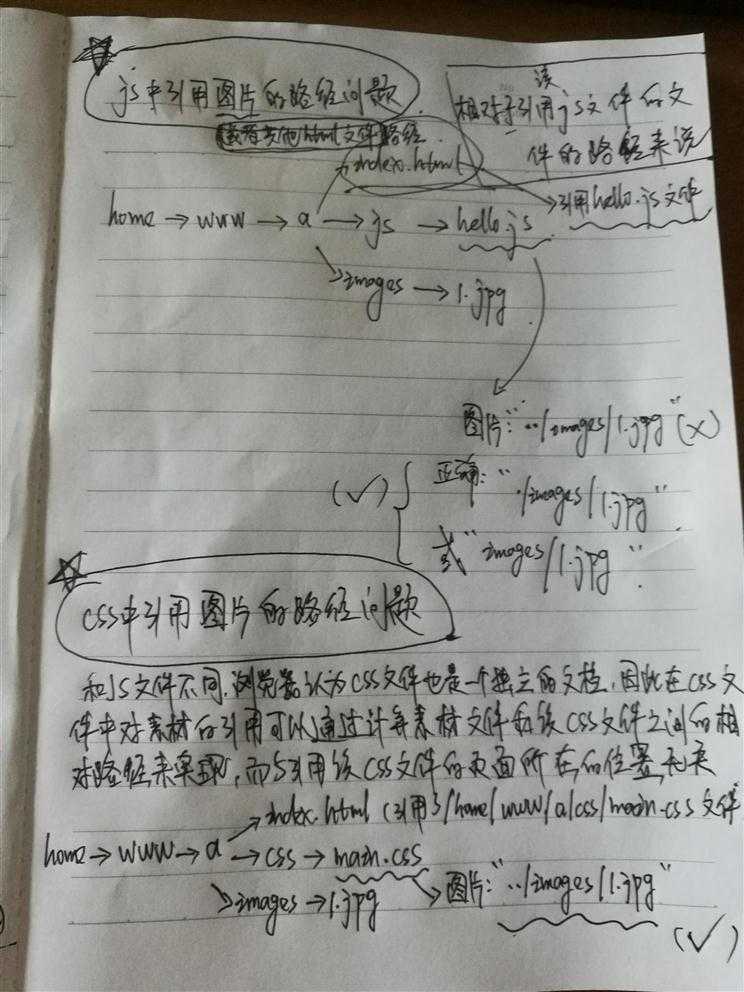 js中引用图片的路径问题
该
相对于引用js文件的文
件的路径来说
或者其他html文件路径
index.html
引用hello.js文件
home → www → a → js → hello.js
images → 1.jpg
图片:"../images/1.jpg"(×)
(✓) 正确:"./images/1.jpg"
或"images/1.jpg"
css中引用图片的路径问题
和JS文件不同,浏览器认为CSS文件也是一个独立的文档,因此在CSS文
件中对素材的引用可以通过计算素材文件和该CSS文件之间的相
对路径来实现,而与引用该CSS文件的页面所在的位置无关
index.html (引用了/home/www/a/css/main.css文件
home → www → a → css → main.css
images → 1.jpg
图片:"../images/1.jpg"
(✓)